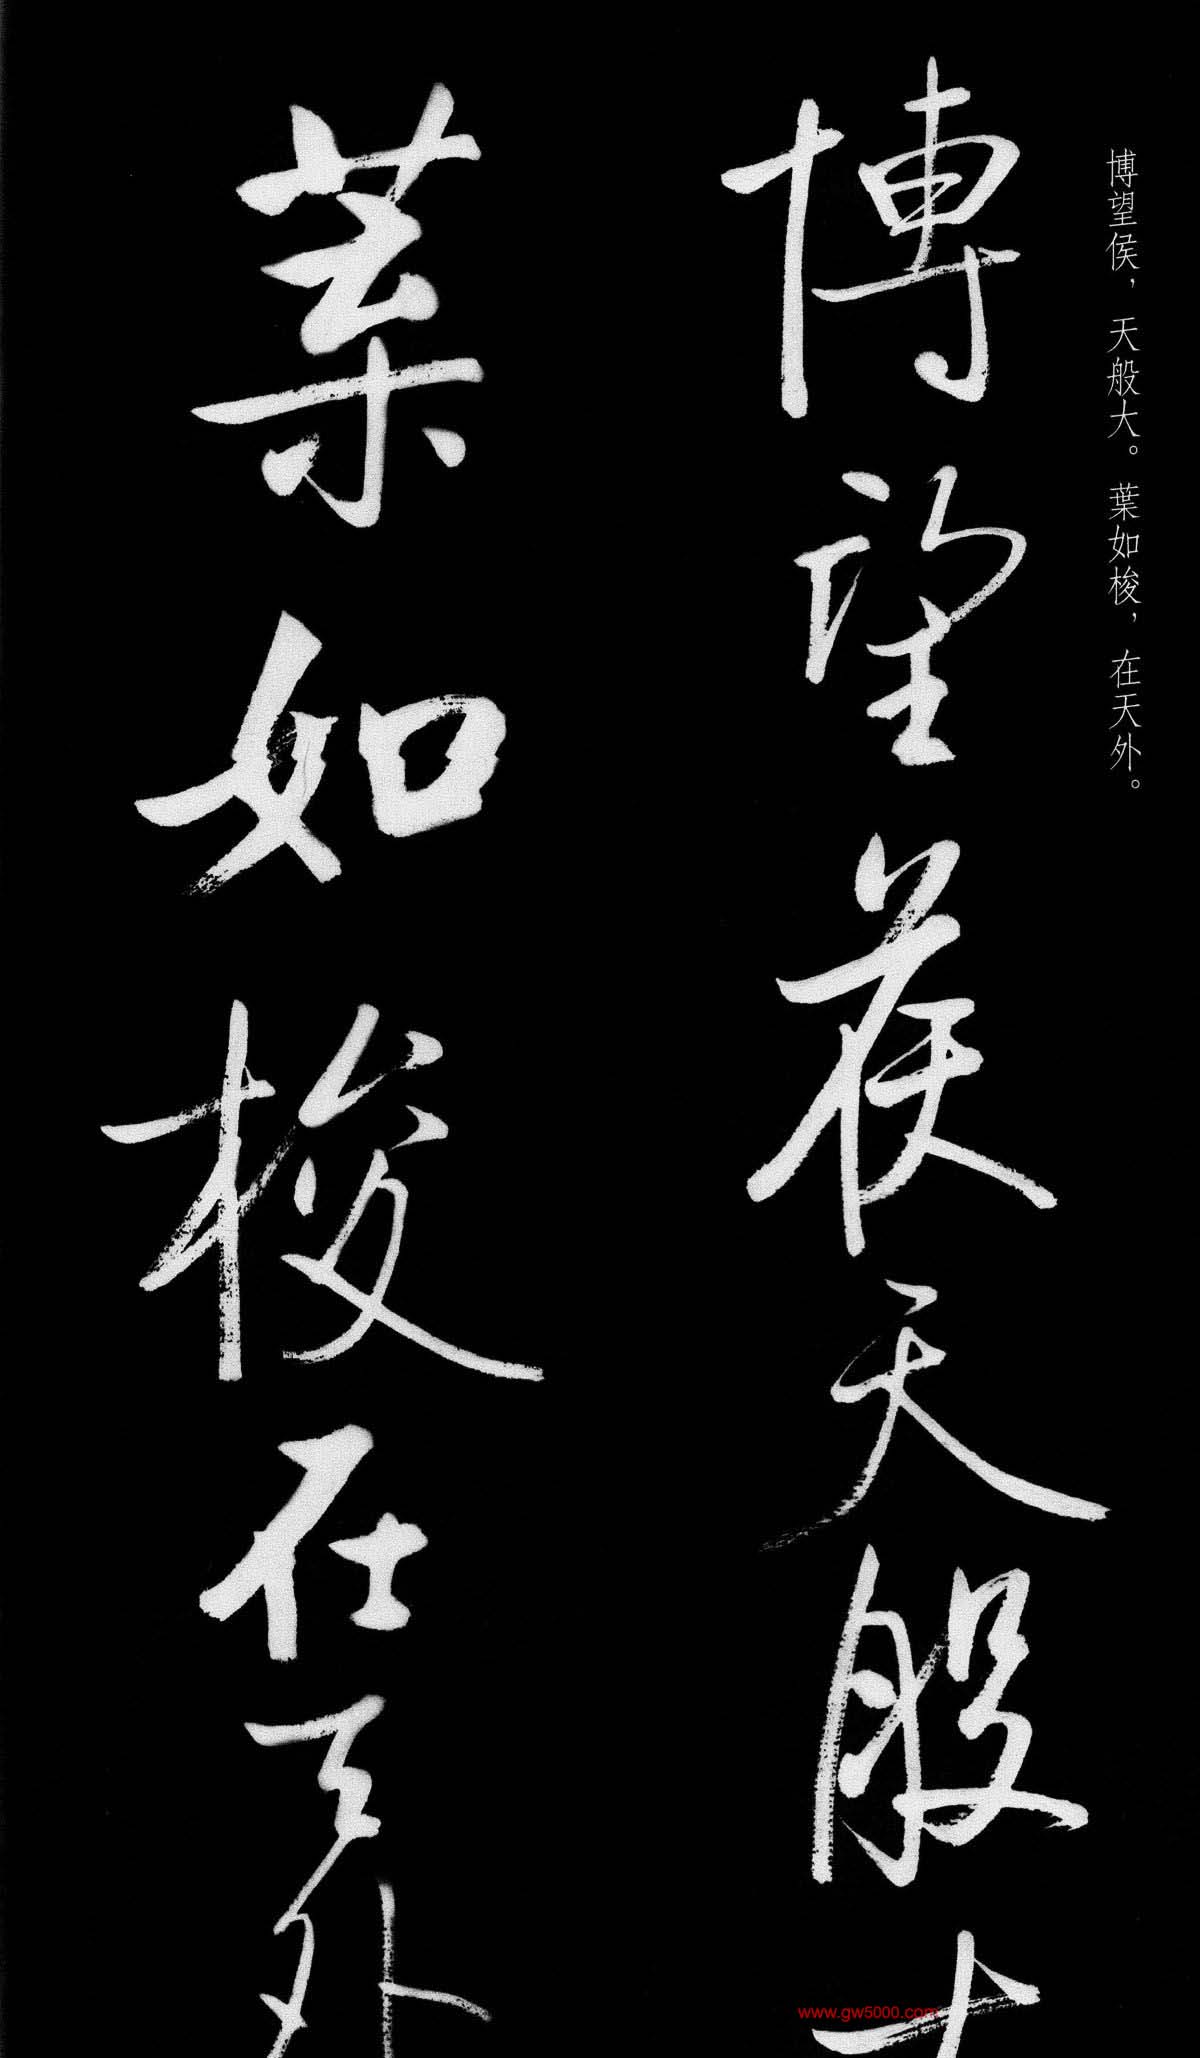 博望侯，天般大。葉如梭，在天外。
博望侯天般大
葉如梭在天外
www.gw5000.com